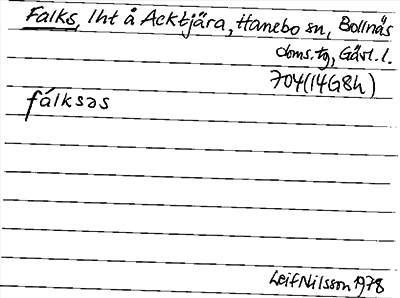 Falks, lht å Acktjära, Hanebo sn, Bollnäs
doms.tg, Gävl.l.
704(14G8h)
fálksəs
Leif Nilsson 1978